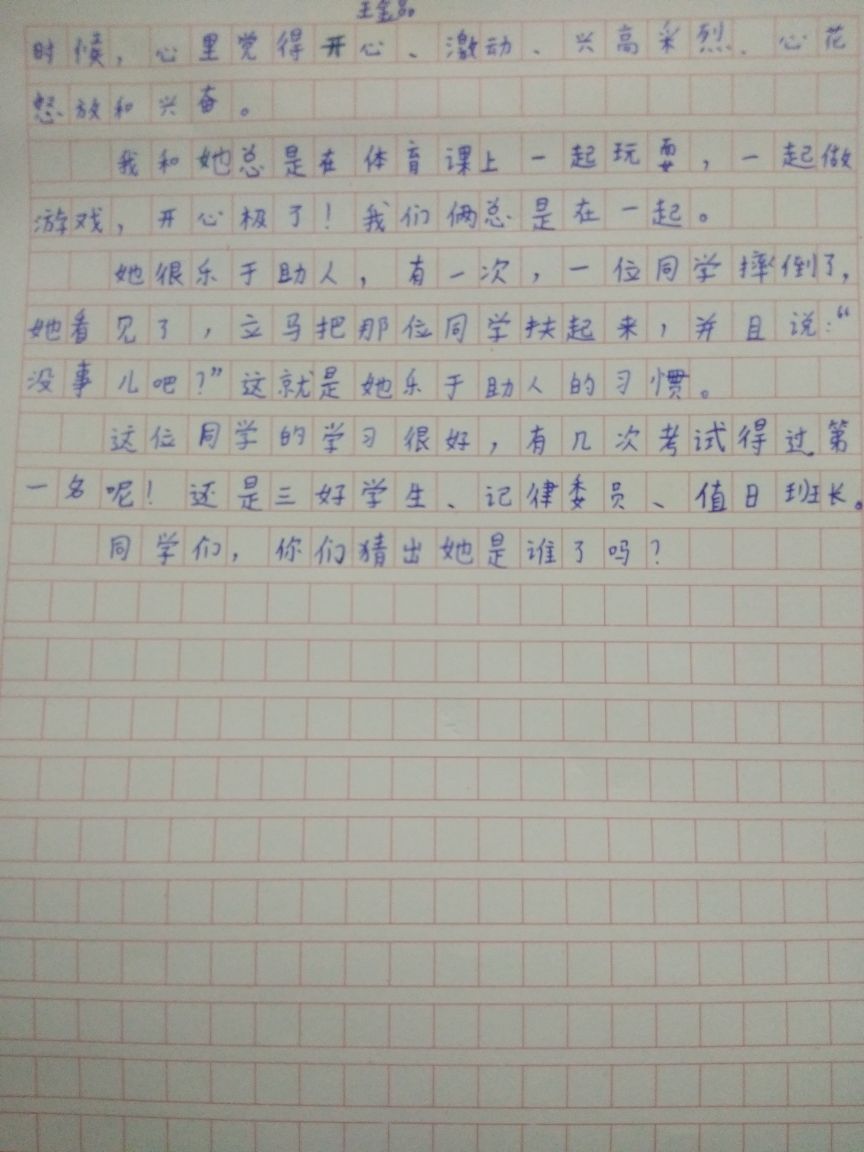 时候，心里觉得开心、激动、兴高采烈、心花
怒放和兴奋。
我和她总是在体育课上一起玩耍，一起做
游戏，开心极了！我们俩总是在一起。
她很乐于助人，有一次，一位同学摔倒了，
她看见了，立马把那位同学扶起来，并且说：“
没事儿吧？”这就是她乐于助人的习惯。
这位同学的学习很好，有几次考试得过第
一名呢！还是三好学生、记律委员、值日班长。
同学们，你们猜出她是谁了吗？